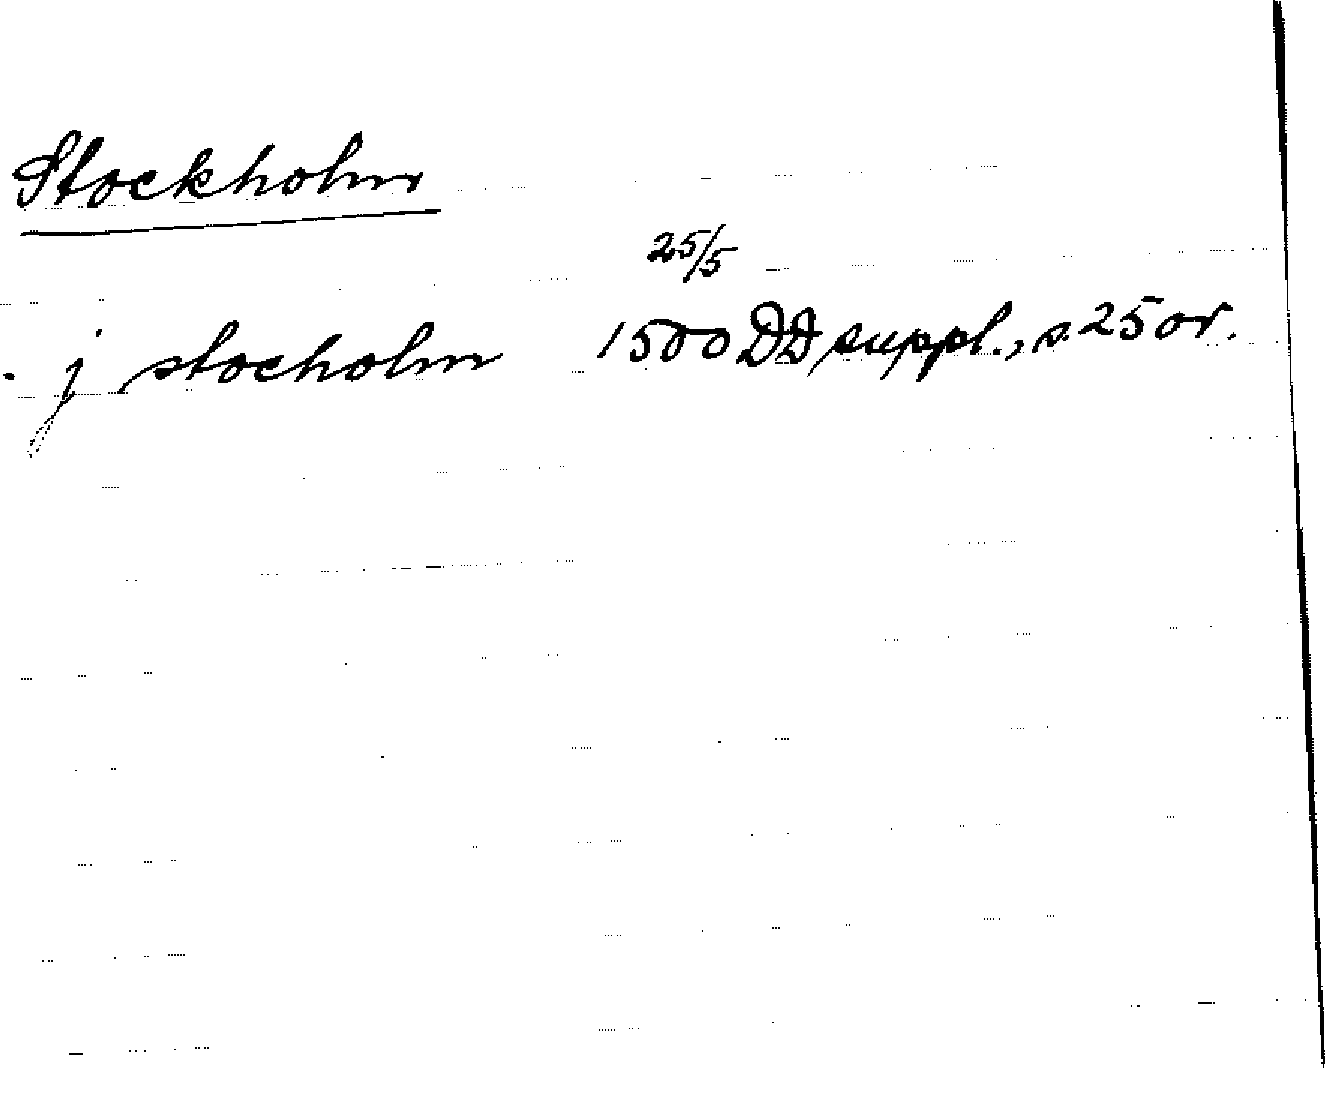 Stockholm
25/5
. j stocholm 1500 DD suppl., s. 25 or.